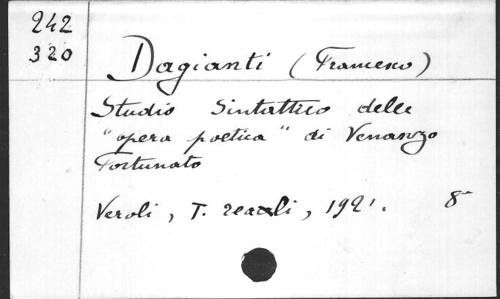 242
320
Dagianti (Francesco)
Studio Sintattico delle
"opera poetica" di Venanzo
Fortunato
Veroli, T. Reali, 1921. 8°